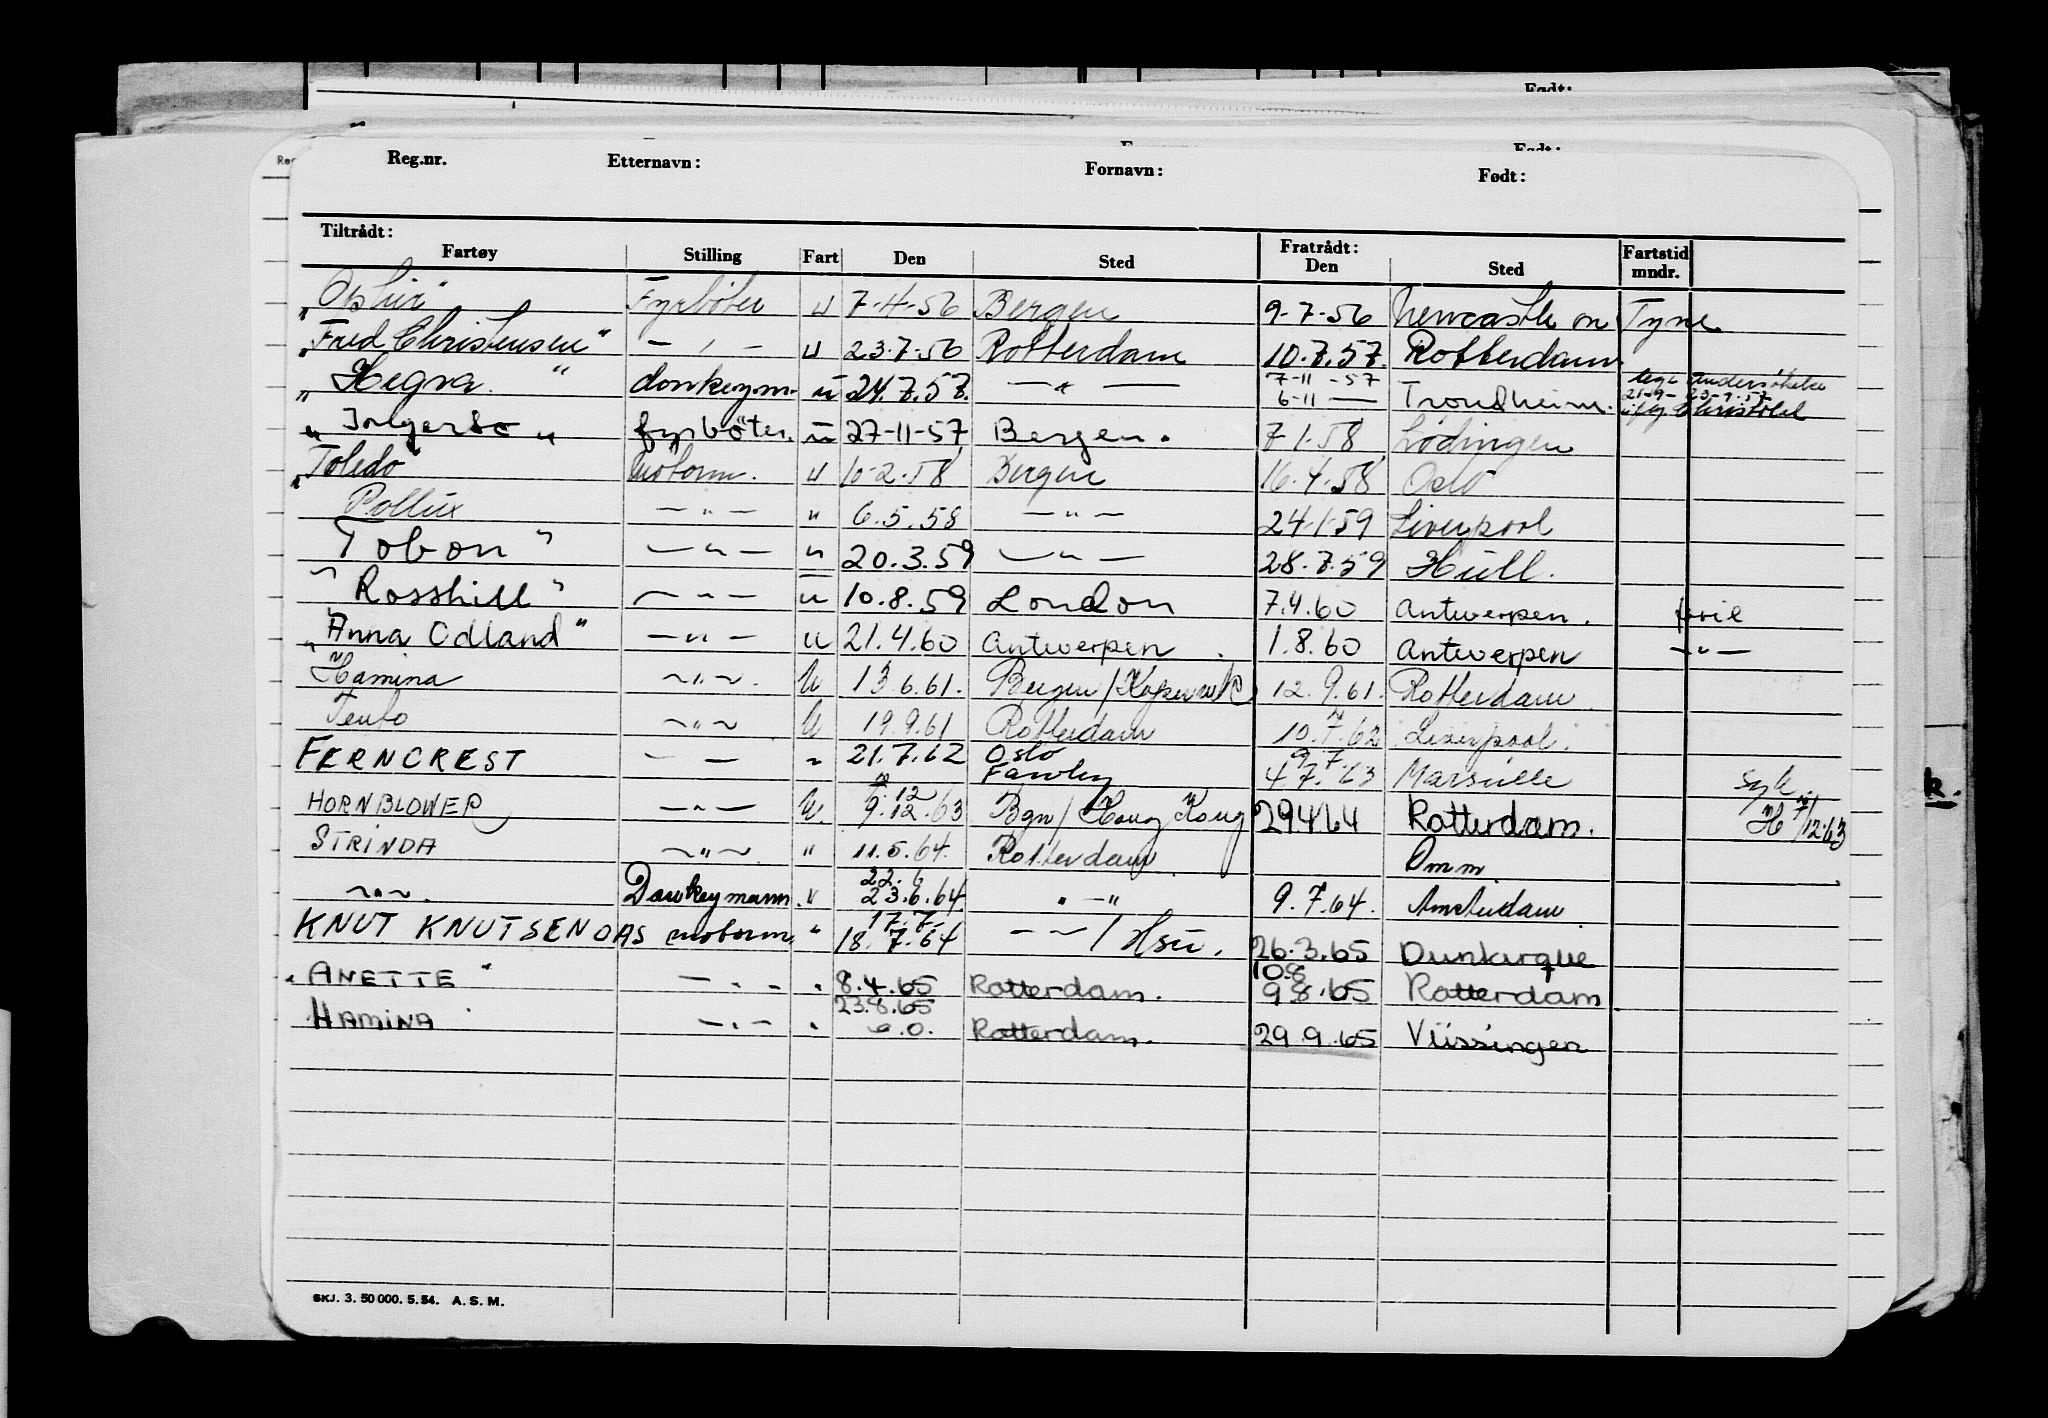 Født:
Født:
Reg.nr. Etternavn: Fornavn: Født:
Tiltrådt: Fratrådt: Fartstid
Fartøy Stilling Fart Den Sted Den Sted mndr.
"Ophir" Fyrbøter u 7-4-56 Bergen 9-7-56 Newcastle on Tyne
"Fred Christensen" — , — u 23.7.56 Rotterdam 10.7.57. Rotterdam
"Hegra" donkeym. u 24.7.57. — " — 7-11-57
6-11 — Trondheim.
" " fyrbøter. u 27-11-57 Bergen. 7-1-58 Lødingen
"Toledo" motorm. u 10-2-58 Bergen 16-4-58 Oslo
Pollux — " — " 6.5.58 — " — 24-1-59 Liverpool
Tobon" — " — " 20.3.59 — " — 28.7.59 Hull.
"Rosshill" — " — u 10.8.59 London 7.4.60 Antwerpen.
"Anna Odland" — " — u 21.4.60 Antwerpen. 1.8.60 Antwerpen — " —
Hamina — " — . U 13.6.61. Bergen / 12.9.61. Rotterdam
— " — U 19.9.61 Rotterdam 10.7.62 Liverpool.
FERNCREST — — " 21.7.62 Oslo
Fawley 9.7.
4.7.63 Marseille syk
HORNBLOWER — " — U. 12
9.12.63 Bgn / Hong Kong 29464 Rotterdam. 7/12.63
STRINDA — " — . " 11.5.64. Rotterdam Omm.
— " — . Donkeymann. " 22.6
23.6.64 " — " 9.7.64. Amsterdam
KNUT KNUTSEN OAS motorm. " 17.7.
18.7.64 — " — / 26.3.65 Dunkirque
"ANETTE" — . - . 8.4.65 Rotterdam. 10.8
9.8.65 Rotterdam
HAMINA — . — . 23.8.65
e.o. Rotterdam. 29.9.65 Vlissingen
SKJ. 3. 50 000. 5. 54. A. S. M.
k.